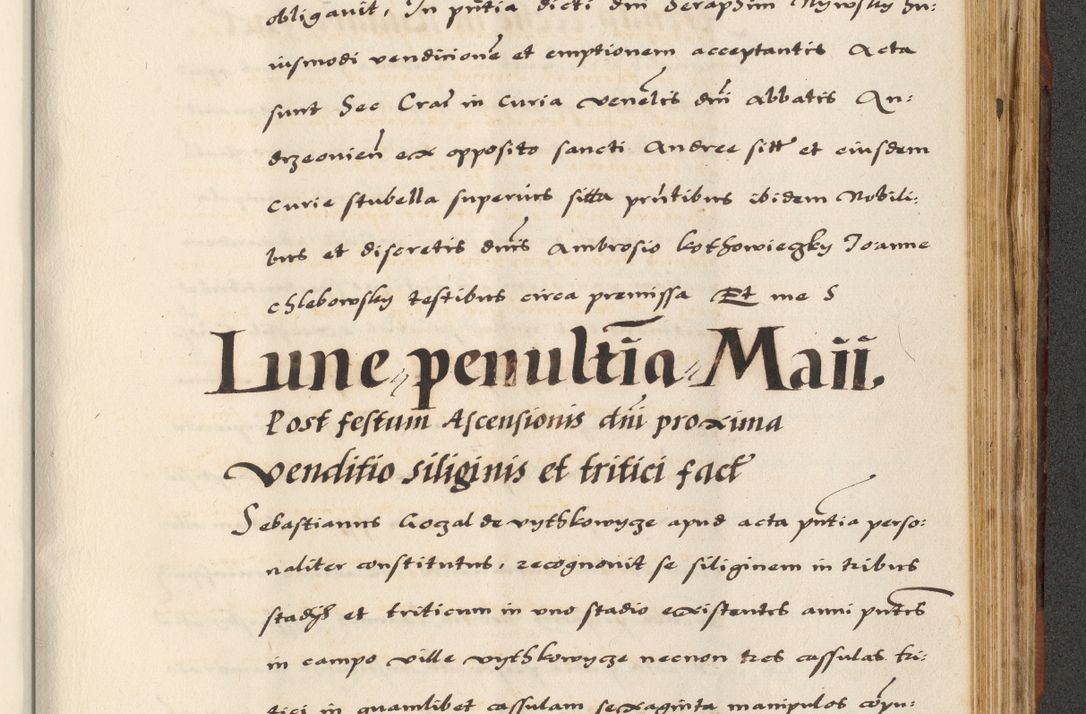 obligavit, In pñtia dicti dñi Seraphin Nywsky hu:
iusmodi vendicionē et emptionem acceptantis Acta
sunt hec Crac̃ in curia venēlis dñi Abbatis An:
drzeovień ex opposito sancti Andree sitt̃ et eiusdem
curie stubella superius sitta pñtibus ibidem Nobili:
bus et discretis dñis Ambrosio kothowiezky Joanne
chlebowsky testibus circa premissa Et me S
Lune penultĩa Maii.
Post festum Ascensionis dñi proxima
Venditio siliginis et tritici fact̃
Sebastianus Goczal de vythkowycze apud acta pñtia perso:
naliter constitutus, recognovit se siliginem in tribus
stadÿs et triticum in uno stadio existentes anni pñtis
in campo ville vythkowycze necnon tres cassulas tri:
tici in quamlibet cassulam sexaginta manipulos cõpu: